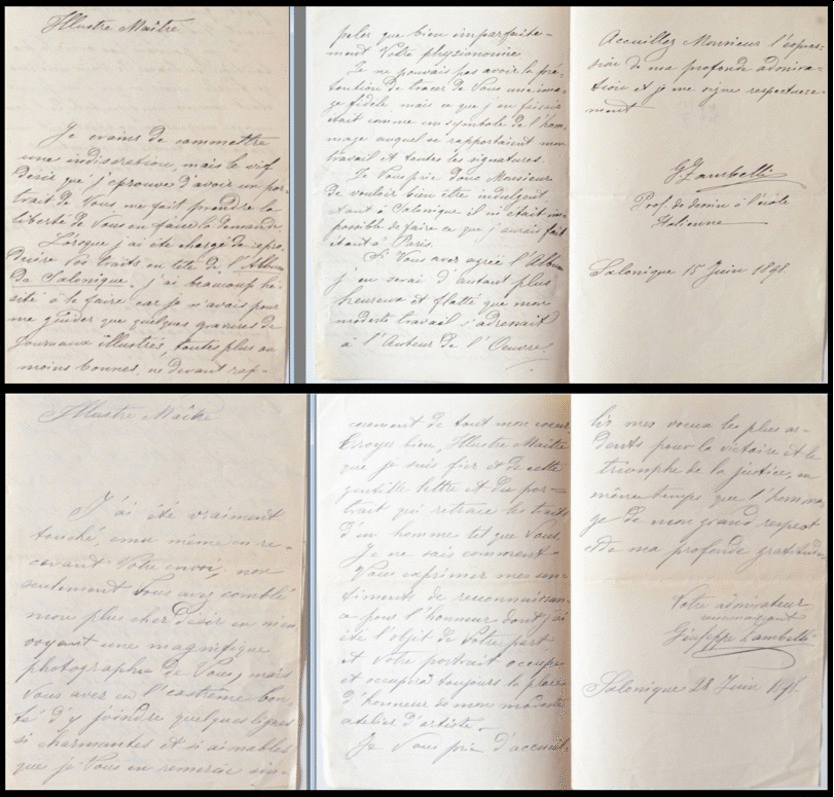 Illustre Maître
Je crains de commettre
une indiscrétion, mais le vif
désir que j'éprouve d'avoir un por-
trait de Vous me fait prendre la
liberté de Vous en faire la demande.
Lorsque j'ai été chargé de repro-
duire Vos traits en tête de l'Album
de Salonique, j'ai beaucoup hé-
sité à le faire car je n'avais pour
me guider que quelques gravures de
journaux illustrés, toutes plus ou
moins bonnes, ne devant rap-
peler que bien imparfaite-
ment Votre physionomie
Je ne pouvais pas avoir la pré-
tention de tracer de Vous une ima-
ge fidèle mais ce que j'en faisais
était comme un symbole de l'hom-
mage auquel se rapportaient mon
travail et toutes les signatures.
Je Vous prie donc Monsieur
de vouloir bien être indulgent
étant à Salonique il m'était im-
possible de faire ce que j'aurais fait
étant à Paris.
Si Vous avez agréé l'Album
j'en serai d'autant plus
heureux et flatté que mon
modeste travail s'adressait
à l'Auteur de l'Oeuvre
Accueillez Monsieur l'expres-
sion de ma profonde admira-
tion et je me signe respectueuse-
ment
G. Zambelli
Prof. de dessin à l'école
Italienne
Salonique 15 Juin 1898.
Illustre Maître
J'ai été vraiment
touché, ému même en re-
cevant Votre envoi; non
seulement Vous avez comblé
mon plus cher désir en m'en-
voyant une magnifique
photographie de Vous, mais
Vous avez eu l'extrême bon-
té d'y joindre quelques lignes
si charmantes et si aimables
que je Vous en remercie sin-
cèrement de tout mon coeur.
Croyez bien, Illustre Maître
que je suis fier et de cette
gentille lettre et du por-
trait qui retrace les traits
d'un homme tel que Vous.
Je ne sais comment
Vous exprimer mes sen-
timents de reconnaissan-
ce pour l'honneur dont j'ai
été l'objet de Votre part
et Votre portrait occupe
et occupera toujours la place
d'honneur de mon modeste
atelier d'artiste.
Je Vous prie d'accueil-
lir mes voeux les plus ar-
dents pour la victoire et le
triomphe de la justice, en
même temps que l'homma-
ge de mon grand respect
et de ma profonde gratitude
Votre admirateur
reconnaissant
Giuseppe Zambelli
Salonique 28 Juin 1898.